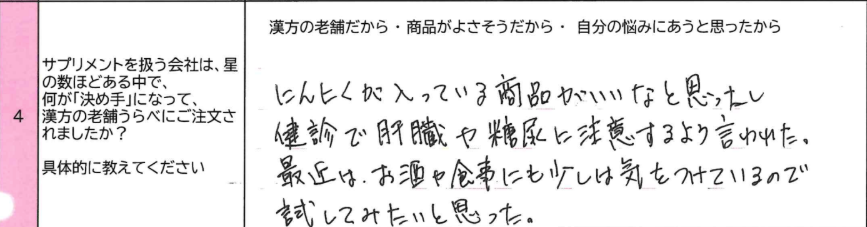 4
サプリメントを扱う会社は、星
の数ほどある中で、
何が「決め手」になって、
漢方の老舗うらべにご注文さ
れましたか？
具体的に教えてください
漢方の老舗だから・商品がよさそうだから・ 自分の悩みにあうと思ったから
にんにくが入っている商品がいいなと思ったし
健診で肝臓や糖尿に注意するよう言われた。
最近は、お酒や食事にも少しは気をつけているので
試してみたいと思った。